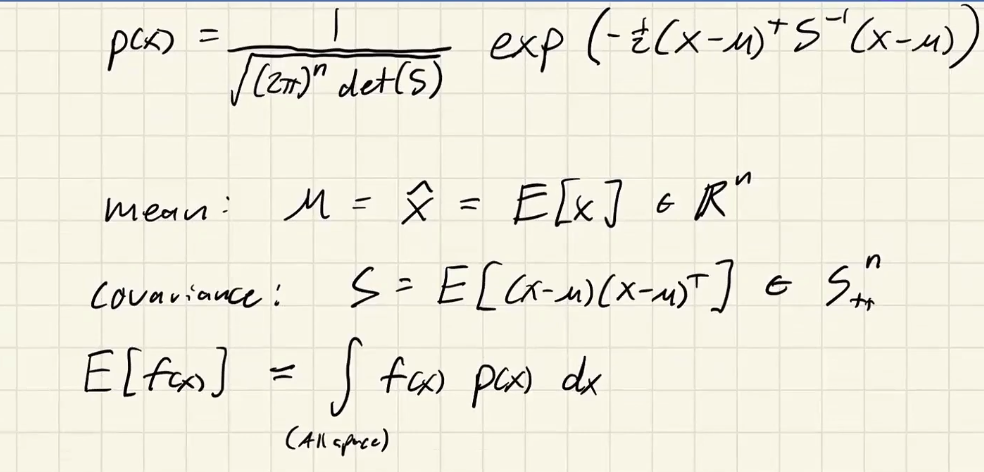 p(x) = 1 / √((2π)ⁿ det(S)) exp(-½(x-μ)ᵀ S⁻¹(x-μ))
mean: μ = x̂ = E[x] ∈ ℝⁿ
covariance: S = E[(x-μ)(x-μ)ᵀ] ∈ Sⁿ₊₊
E[f(x)] = ∫ f(x) p(x) dx
(All space)